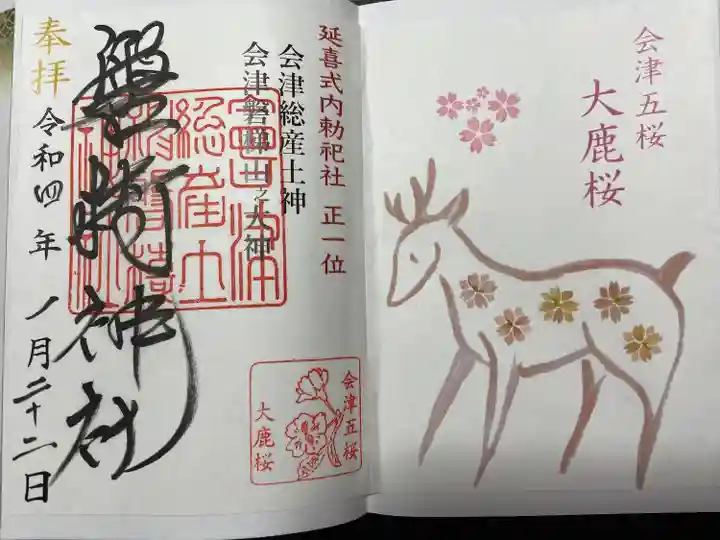 会津五桜
大鹿桜
延喜式内勅祀社 正一位
会津総産土神
会津磐梯山之大神
磐椅神社
奉拝
令和四年 月二十二日
会津五桜
大鹿桜